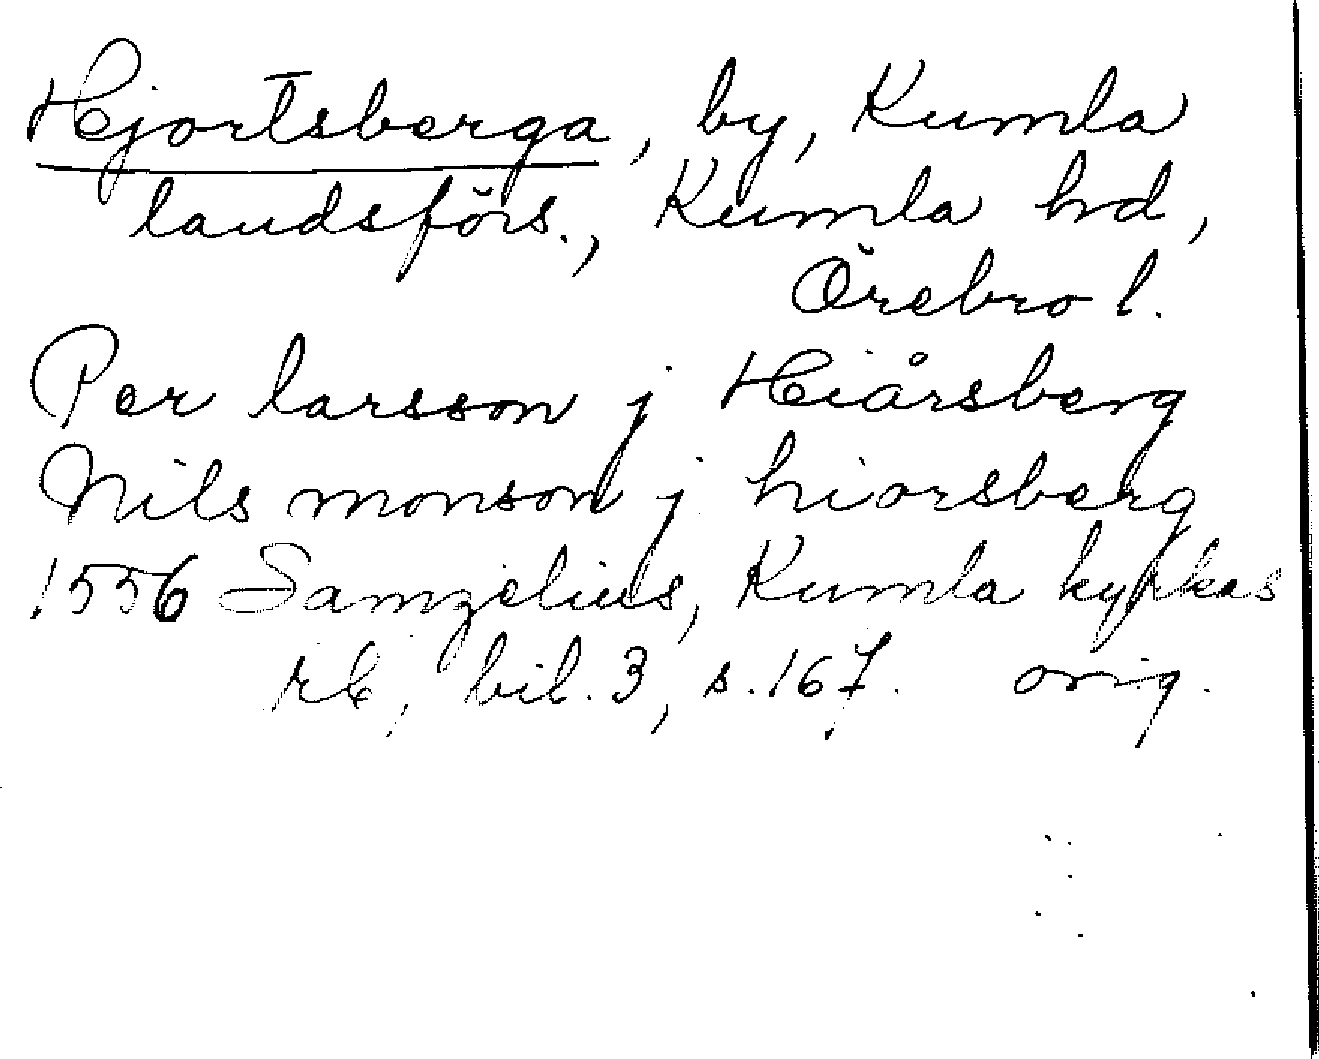 Hjortsberga, by, Kumla
landsförs., Kumla hd,
Örebro l.
Per larsson j Hiårsberg
Nils monson j hiorsberg
1556 Samzelius, Kumla kyrkas
rb, bil. 3, s. 167. orig.